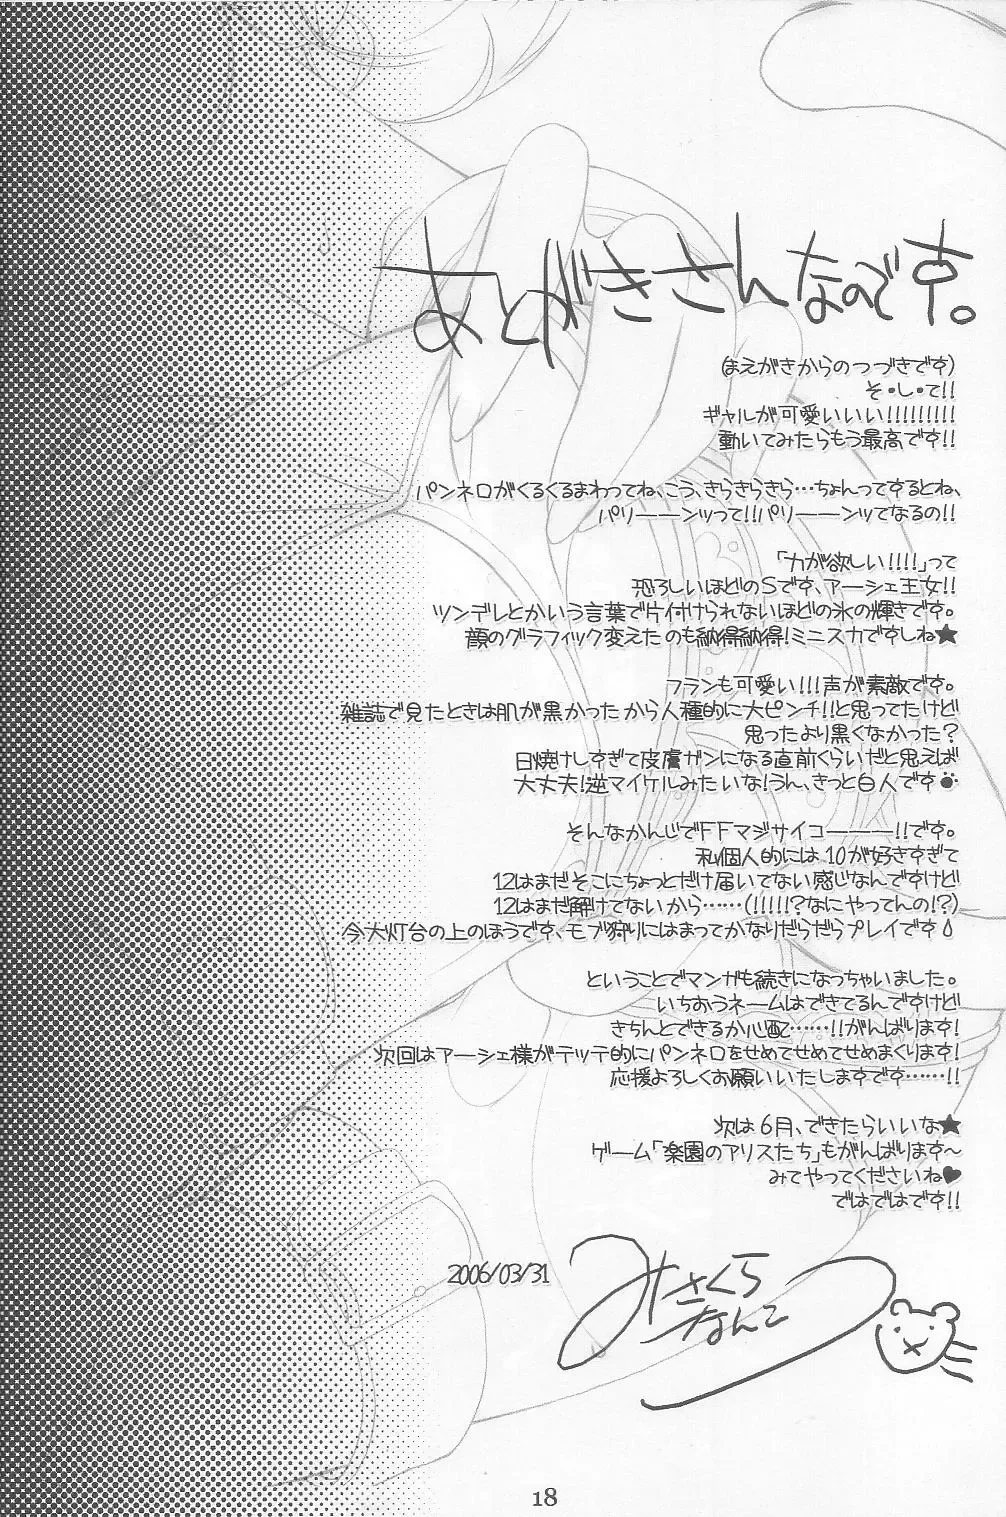 あとがきさんなのです。
(まえがきからのつづきです)
そ・し・て!!
ギャルが可愛いいい!!!!!!!!!
動いてみたらもう最高です!!
パンネロがくるくるまわってね、こう、きらきらきら…ちょんってするとね、
パリーーンッって!!パリーーンッてなるの!!
「力が欲しい!!!!」って
恐ろしいほどのSです、アーシェ王女!!
ツンデレとかいう言葉で片付けられないほどの氷の輝きです。
顔のグラフィック変えたのも納得納得!ミニスカですしね★
フランも可愛い!!!声が素敵です。
雑誌で見たときは肌が黒かったから人種的に大ピンチ!!と思ってたけど
思ったより黒くなかった?
日焼けしすぎて皮膚ガンになる直前くらいだと思えば
大丈夫!逆マイケルみたいな!うん、きっと白人です
そんなかんじでFFマジサイコーーー!!です。
私個人的には10が好きすぎて
12はまだそこにちょっとだけ届いてない感じなんですけど
12はまだ解けてないから……(!!!!!?なにやってんの!?)
今大灯台の上のほうです、モブ狩りにはまってかなりだらだらプレイです
ということでマンガも続きになっちゃいました。
いちおうネームはできてるんですけど
きちんとできるか心配……!!がんばります!
次回はアーシェ様がテッテ的にパンネロをせめてせめてせめまくります!
応援よろしくお願いいたしますです……!!
次は6月、できたらいいな★
ゲーム「楽園のアリスたち」もがんばります〜
みてやってくださいね♥
ではではです!!
2006/03/31
みさくら
なんこつ
18